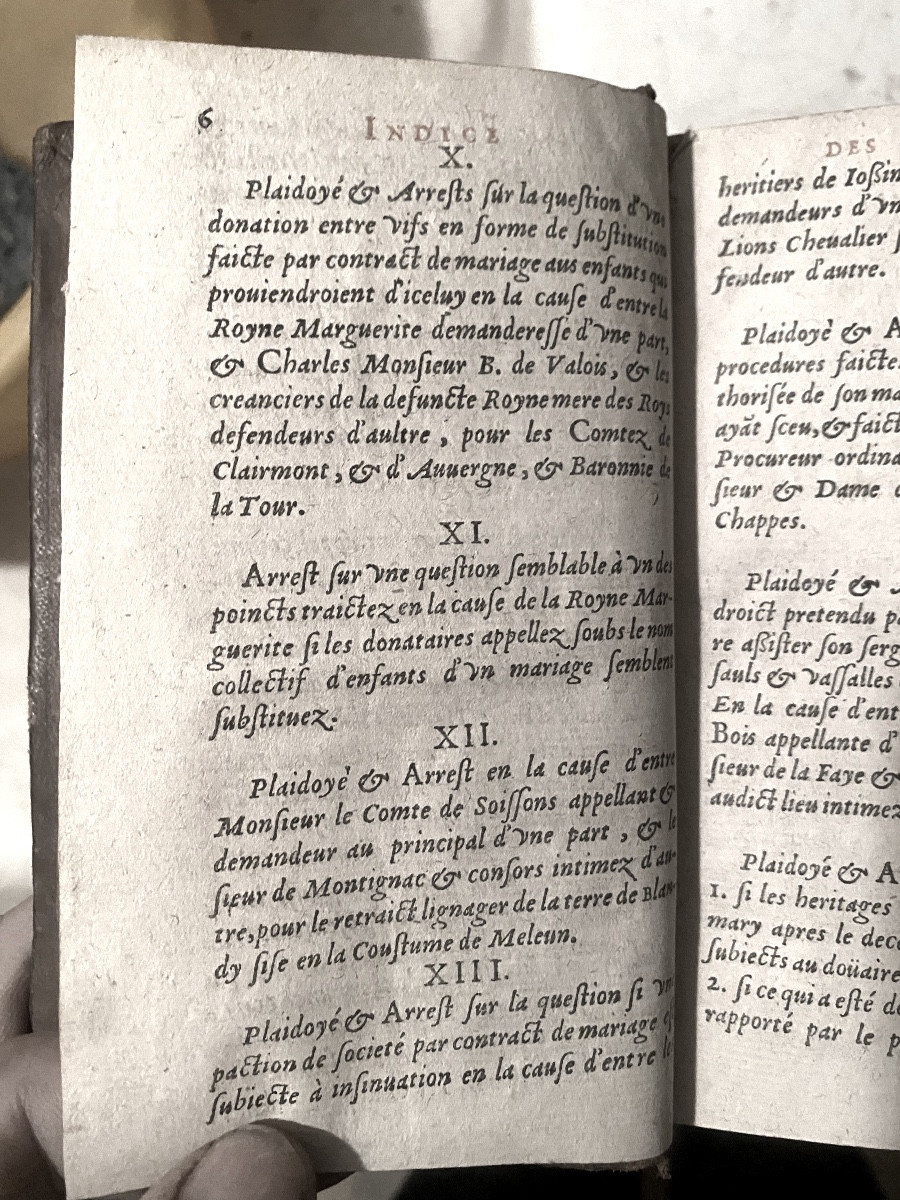 6
INDICE
X.
Plaidoyé & Arrests sur la question d'vne
donation entre vifs en forme de substitution
faicte par contract de mariage aus enfants qui
prouiendroient d'iceluy en la cause d'entre la
Royne Marguerite demanderesse d'vne part,
& Charles Monsieur B. de Valois, & les
creanciers de la defuncte Royne mere des Roys
defendeurs d'aultre, pour les Comtez de
Clairmont, & d'Auuergne, & Baronnie de
la Tour.
XI.
Arrest sur vne question semblable à vn des
poincts traictez en la cause de la Royne Mar-
guerite si les donataires appellez soubs le nom
collectif d'enfants d'vn mariage semblent
substituez.
XII.
Plaidoyè & Arrest en la cause d'entre
Monsieur le Comte de Soissons appellant &
demandeur au principal d'vne part, & le
sieur de Montignac & consors intimez d'au-
tre, pour le retraict lignager de la terre de Blan-
dy sise en la Coustume de Meleun.
XIII.
Plaidoyé & Arrest sur la question si vne
paction de societé par contract de mariage est
subiecte à insinuation en la cause d'entre le
DES
heritiers de Iossin
demandeurs d'vn
Lions Cheualier
fendeur d'autre.
Plaidoyè & A
procedures faicte
thorisée de son ma
ayãt sceu, & faict
Procureur ordina
sieur & Dame
Chappes.
Plaidoyé &
droict pretendu p
re assister son serg
sauls & vassalles
En la cause d'ent
Bois appellante d'
sieur de la Faye &
audict lieu intimez
Plaidoyé & A
1. si les heritages
mary apres le dec
subiects au doüaire
2. si ce qui a esté d
rapporté par le p